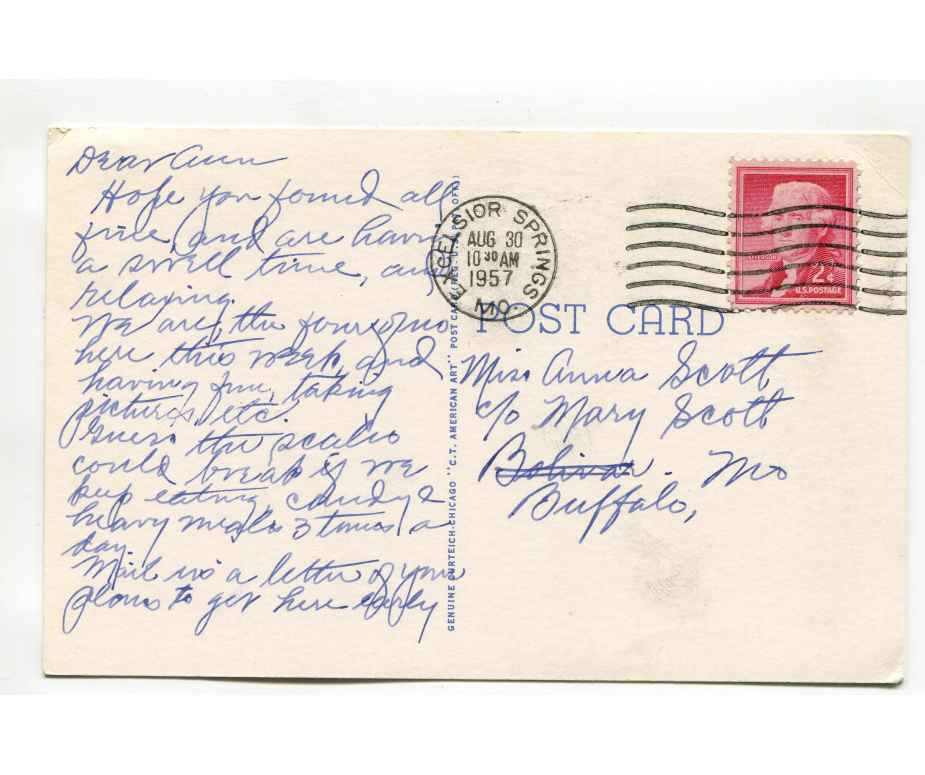 Dear Ann
Hope you found all
fine, and are havin
a swell time, and
relaxing.
We are, the four of us
here this week, and
having fun, taking
pictures, etc.
Guess the scales
could break if we
keep eating candy &
heavy meals 3 times a
day.
Mail us a letter of your
plans to get here early
GENUINE CURTEICH-CHICAGO "C.T. AMERICAN ART" POST CARD (REG. U.S. PAT. OFF.)
EXCELSIOR SPRINGS
AUG 30
10 30 AM
1957
MO.
JEFFERSON
2¢
U.S. POSTAGE
POST CARD
Miss Anna Scott
c/o Mary Scott
Bolivar. Mo
Buffalo,